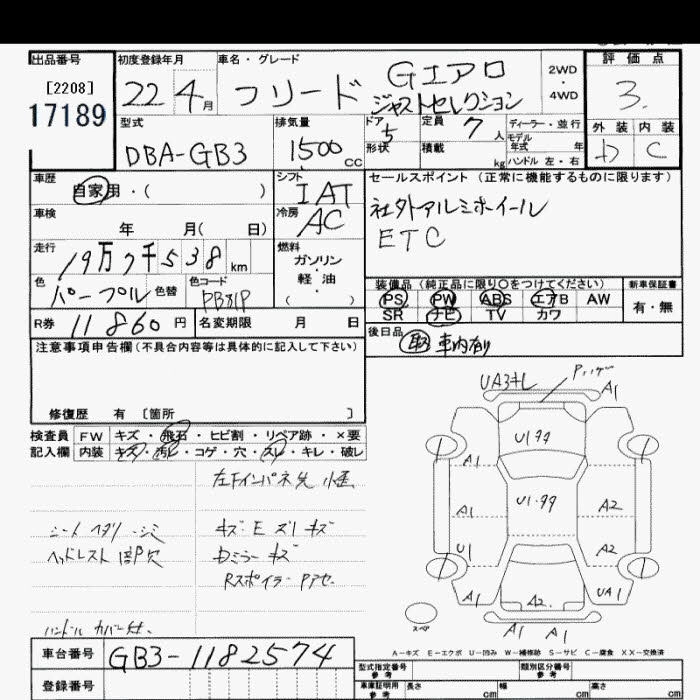 出品番号
[2208]
17189
初度登録年月
22 4月
車名・グレード
フリード Gエアロ
ジャストセレクション
2WD
・
4WD
評価点
3.
外装 内装
D C
型式
DBA-GB3
排気量
1500cc
ドア
5
形状
定員
7人
積載
kg
ディーラー・並行
モデル
年式 年
ハンドル 左・右
車歴
自家用・( )
シフト
IAT
セールスポイント (正常に機能するものに限ります)
社外アルミホイール
ETC
車検
年 月( 日)
冷房
AC
走行
19万7千538km
燃料
ガソリン
・
軽・油
( )
色
パープル
色替
色コード
PB81P
装備品(純正品に限り○をつけてください)
PS PW ABS エアB AW
SR ナビ TV カワ
新車保証書
有・無
R券 11860円
名変期限 月 日
後日品
取 車内有り
注意事項申告欄(不具合内容等は具体的に記入して下さい)
修復歴 有 〔箇所 〕
検査員
記入欄
FW キズ・飛石・ヒビ割・リペア跡・×要
内装 キズ・汚レ・コゲ・穴・スレ・キレ・破レ
シート ヘタリ・シミ
ヘッドレスト 1部欠
ハンドル カバー付.
キズ・E ズリキズ
Dミラー キズ
Rスポイラー Pアセ.
UA3キレ
A1
U199
A1
U1・99
A2
A1
U1
A2
A1
A2
UA1
スペア
A1 A1
A-キズ E-エクボ U-凹み W-補修跡 S-サビ C-腐食 XX-交換済
車台番号
GB3-1182574
登録番号
型式指定番号
参考
類別区分番号
参考
車庫証明用
参考
長さ cm 幅 cm 高さ cm